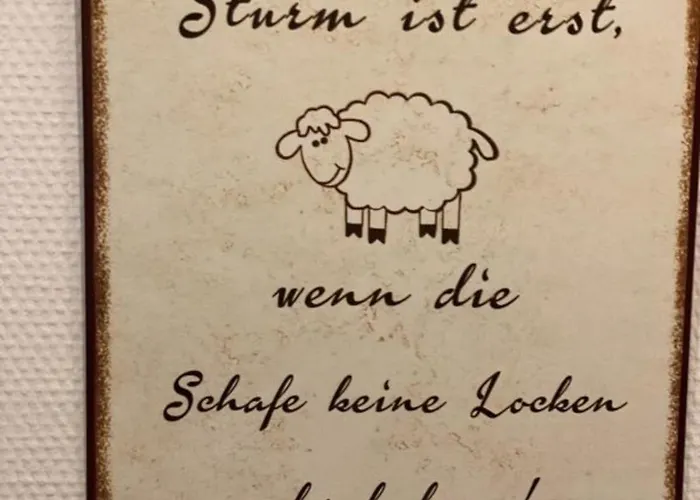 Sturm ist erst,
wenn die
Schafe keine Locken